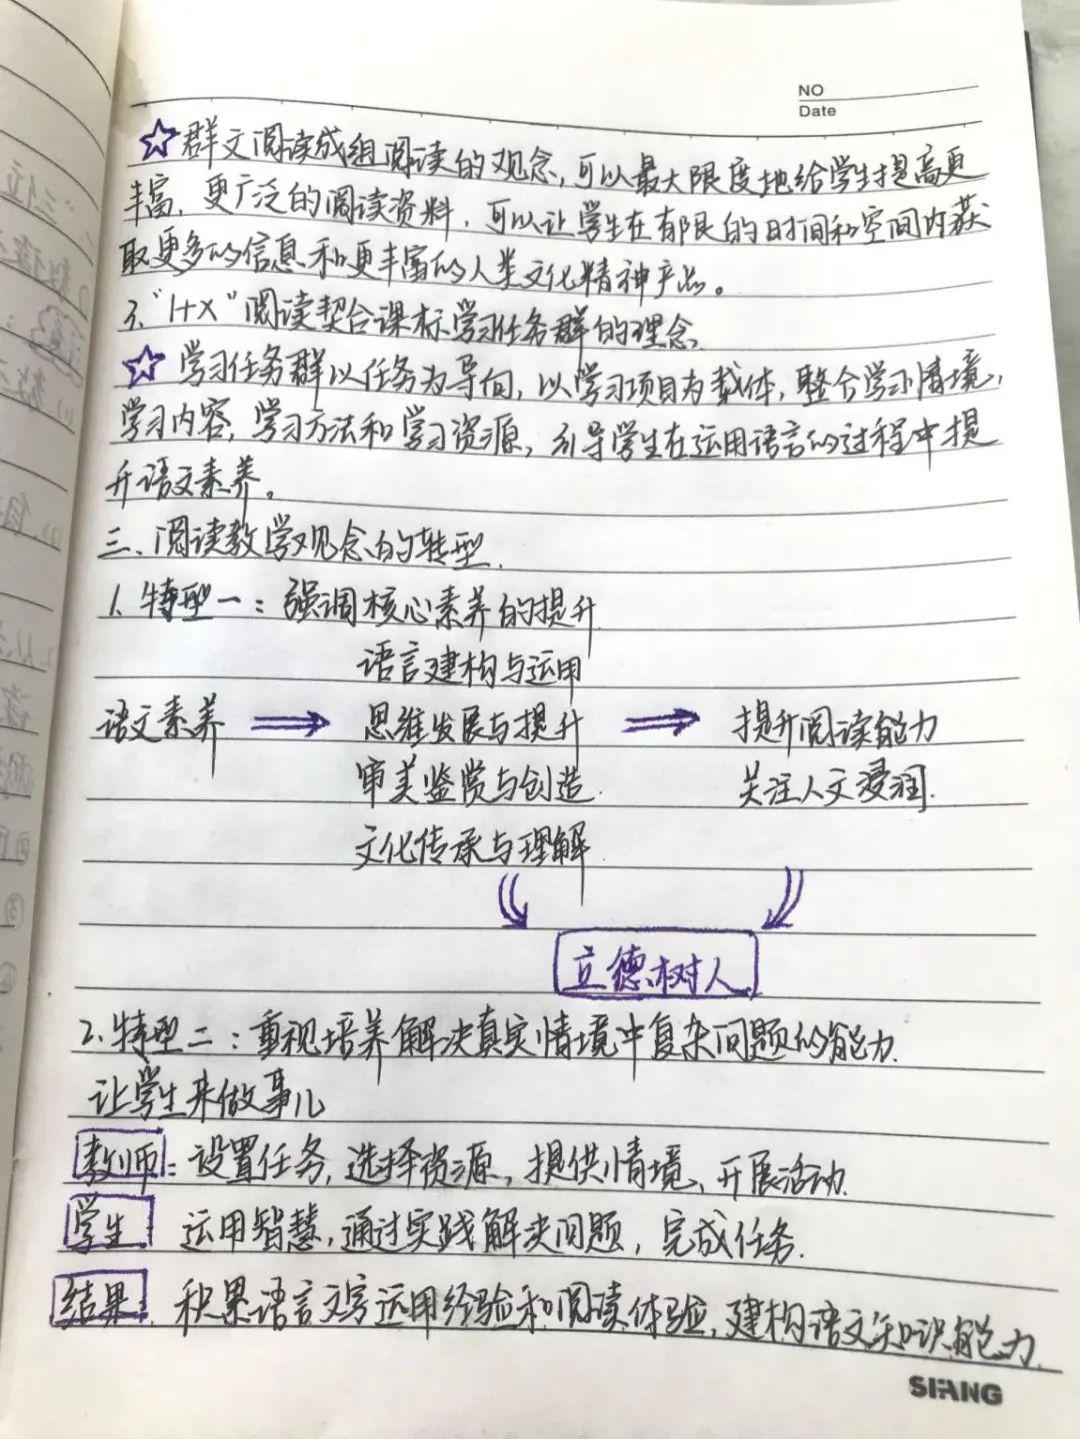 NO
Date
☆群文阅读成组阅读的观念,可以最大限度地给学生提高更
丰富、更广泛的阅读资料,可以让学生在有限的时间和空间内获
取更多的信息和更丰富的人类文化精神产品。
3、"1+X"阅读契合课标学习任务群的理念.
☆ 学习任务群以任务为导向,以学习项目为载体,整合学习情境,
学习内容,学习方法和学习资源,引导学生在运用语言的过程中提
升语文素养。
三、阅读教学观念的转型.
1、转型一:强调核心素养的提升
语言建构与运用
语文素养 ⇒ 思维发展与提升 ⇒ 提升阅读能力
审美鉴赏与创造 关注人文浸润.
文化传承与理解
立德树人
2、转型二:重视培养解决真实情境中复杂问题的能力.
让学生来做事儿
教师:设置任务,选择资源,提供情境、开展活动.
学生:运用智慧,通过实践解决问题,完成任务.
结果:积累语言文字运用经验和阅读体验,建构语文知识能力.
SIANG